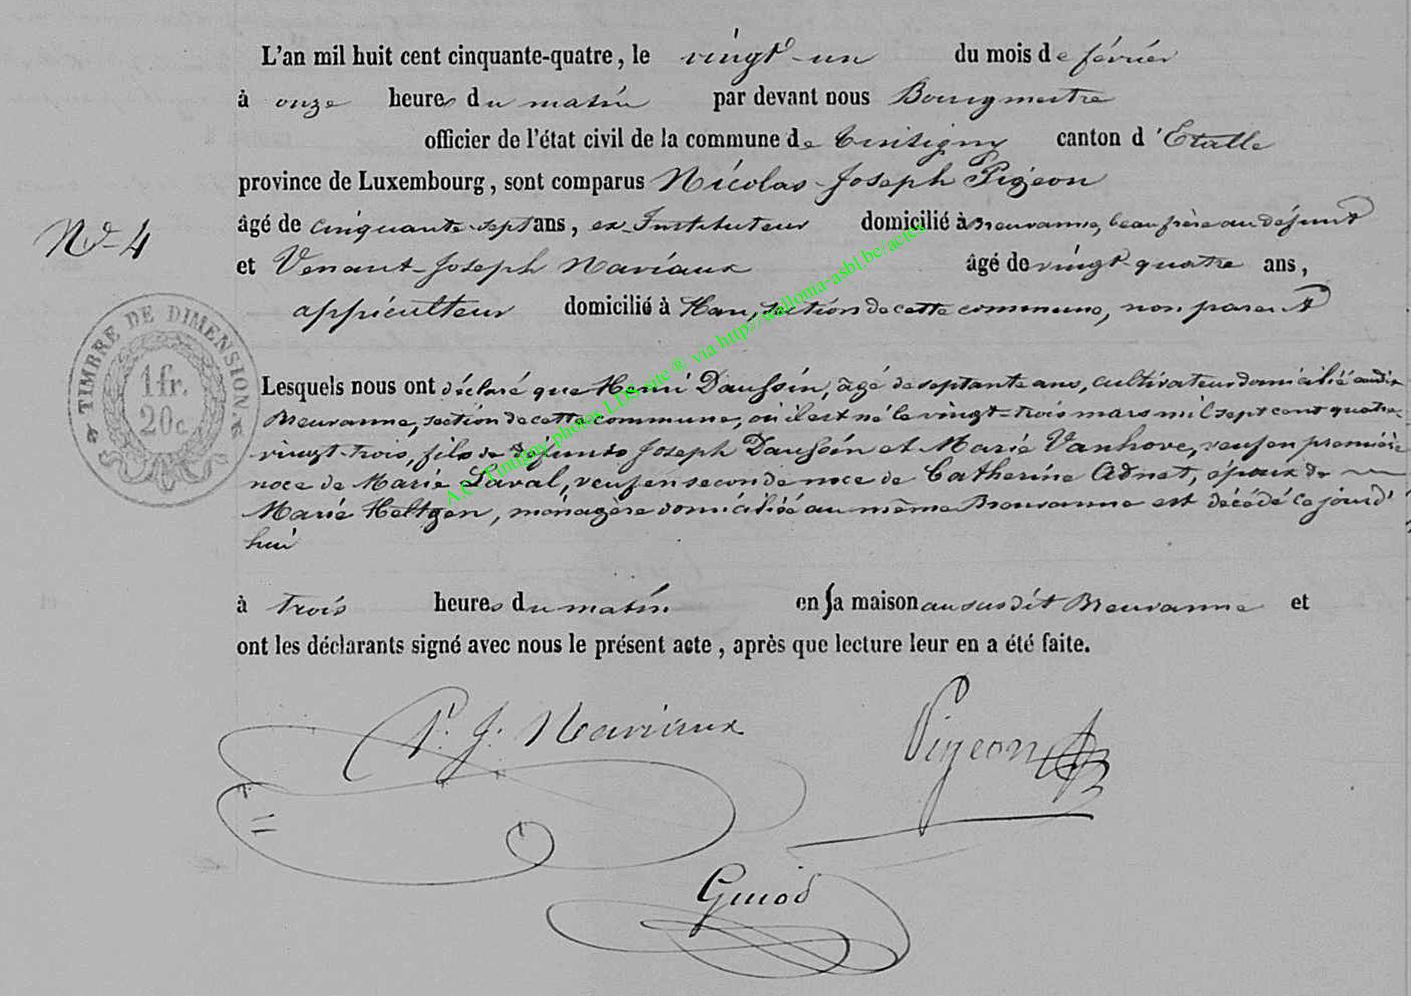 L'an mil huit cent cinquante-quatre, le vingt-un du mois de février
à onze heures du matin par devant nous Bourgmestre
officier de l'état civil de la commune de Tintigny canton d'Etalle
province de Luxembourg, sont comparus Nicolas-Joseph Pigeon
âgé de cinquante-sept ans, ex-Instituteur domicilié à Breuvanne, beau frère au défunt
N° 4
et Venant-Joseph Naviaux âgé de vingt-quatre ans,
appiculteur domicilié à Han, section de cette commune, non parent
TIMBRE DE DIMENSION.
1 fr.
20 c.
Lesquels nous ont déclaré que Henri Daussin, âgé de septante ans, cultivateur domicilié audit
Breuvanne, section de cette commune, où il est né le vingt-trois mars mil sept cent quatre-
vingt-trois, fils de défunts Joseph Daussin et Marie Vanhove, veuf en première
noce de Marie Laval, veuf en seconde noce de Catherine Adnet, époux de
Marie Heltgen, ménagère domiciliée au même Breuvanne est décédé ce jourd'
hui
à trois heures du matin en sa maison au susdit Breuvanne et
ont les déclarants signé avec nous le présent acte, après que lecture leur en a été faite.
V. J. Naviaux
Pigeon
Guiod
A.C. Tintigny photos LDS site ® via http://wallonia-asbl.be/actes